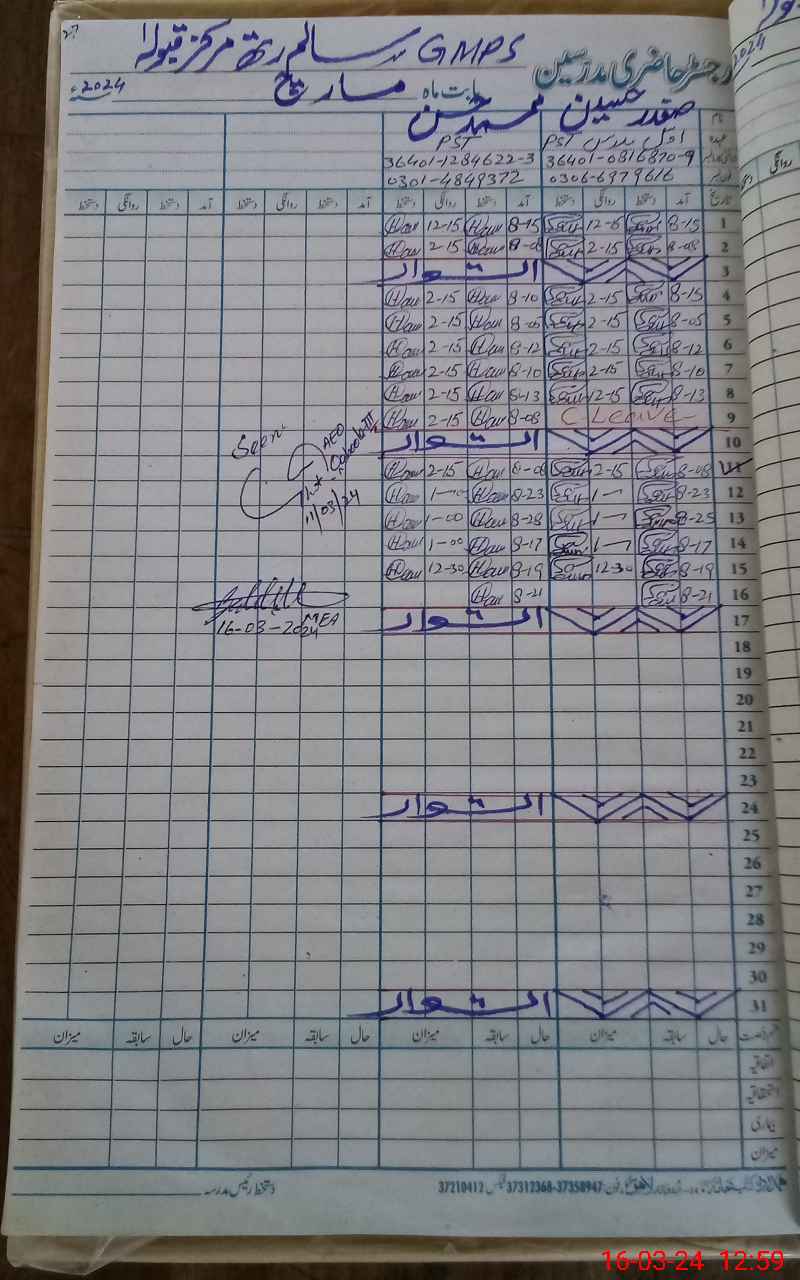 رجسٹر حاضری مدرسین GMPS سالم رتھ مرکز قبولہ
بابت ماہ مارچ 2024ء
صفدر حسین محمد حسن
اول مدرس PST PST
36401-0816870-9 36401-1284622-3
0306-6979616 0301-4849372
تاریخ آمد دستخط روانگی دستخط آمد دستخط روانگی دستخط آمد دستخط روانگی دستخط آمد دستخط روانگی دستخط
1 8-15 8-15 12-15
2 8-08 2-15 2-15
3 اتوار
4 8-15 2-15 8-10 2-15
5 8-05 2-15 8-05 2-15
6 8-12 2-15 8-12 2-15
7 8-10 2-15 8-10 2-15
8 8-13 12-15 8-13 2-15
9 C-Leave 8-08 2-15
10 اتوار
11 8-08 2-15 2-15
12 8-23 1- 8-23 1-
13 8-25 1- 8-28 1-00
14 8-17 1- 8-17 1-00
15 8-19 12-30 8-19 12-30
16 8-21 8-21
17 اتوار
18
19
20
21
22
23
24 اتوار
25
26
27
28
29
30
31 اتوار
Seen
AEO
11/03/24
16-03-2024 MEA
حال سابقہ میزان حال سابقہ میزان حال سابقہ میزان حال سابقہ میزان
اتفاقیہ
استحقاقیہ
بیماری
میزان
فون 37358947-37312368 فیکس 37210412
دستخط رئیس مدرسہ
16-03-24 12:59